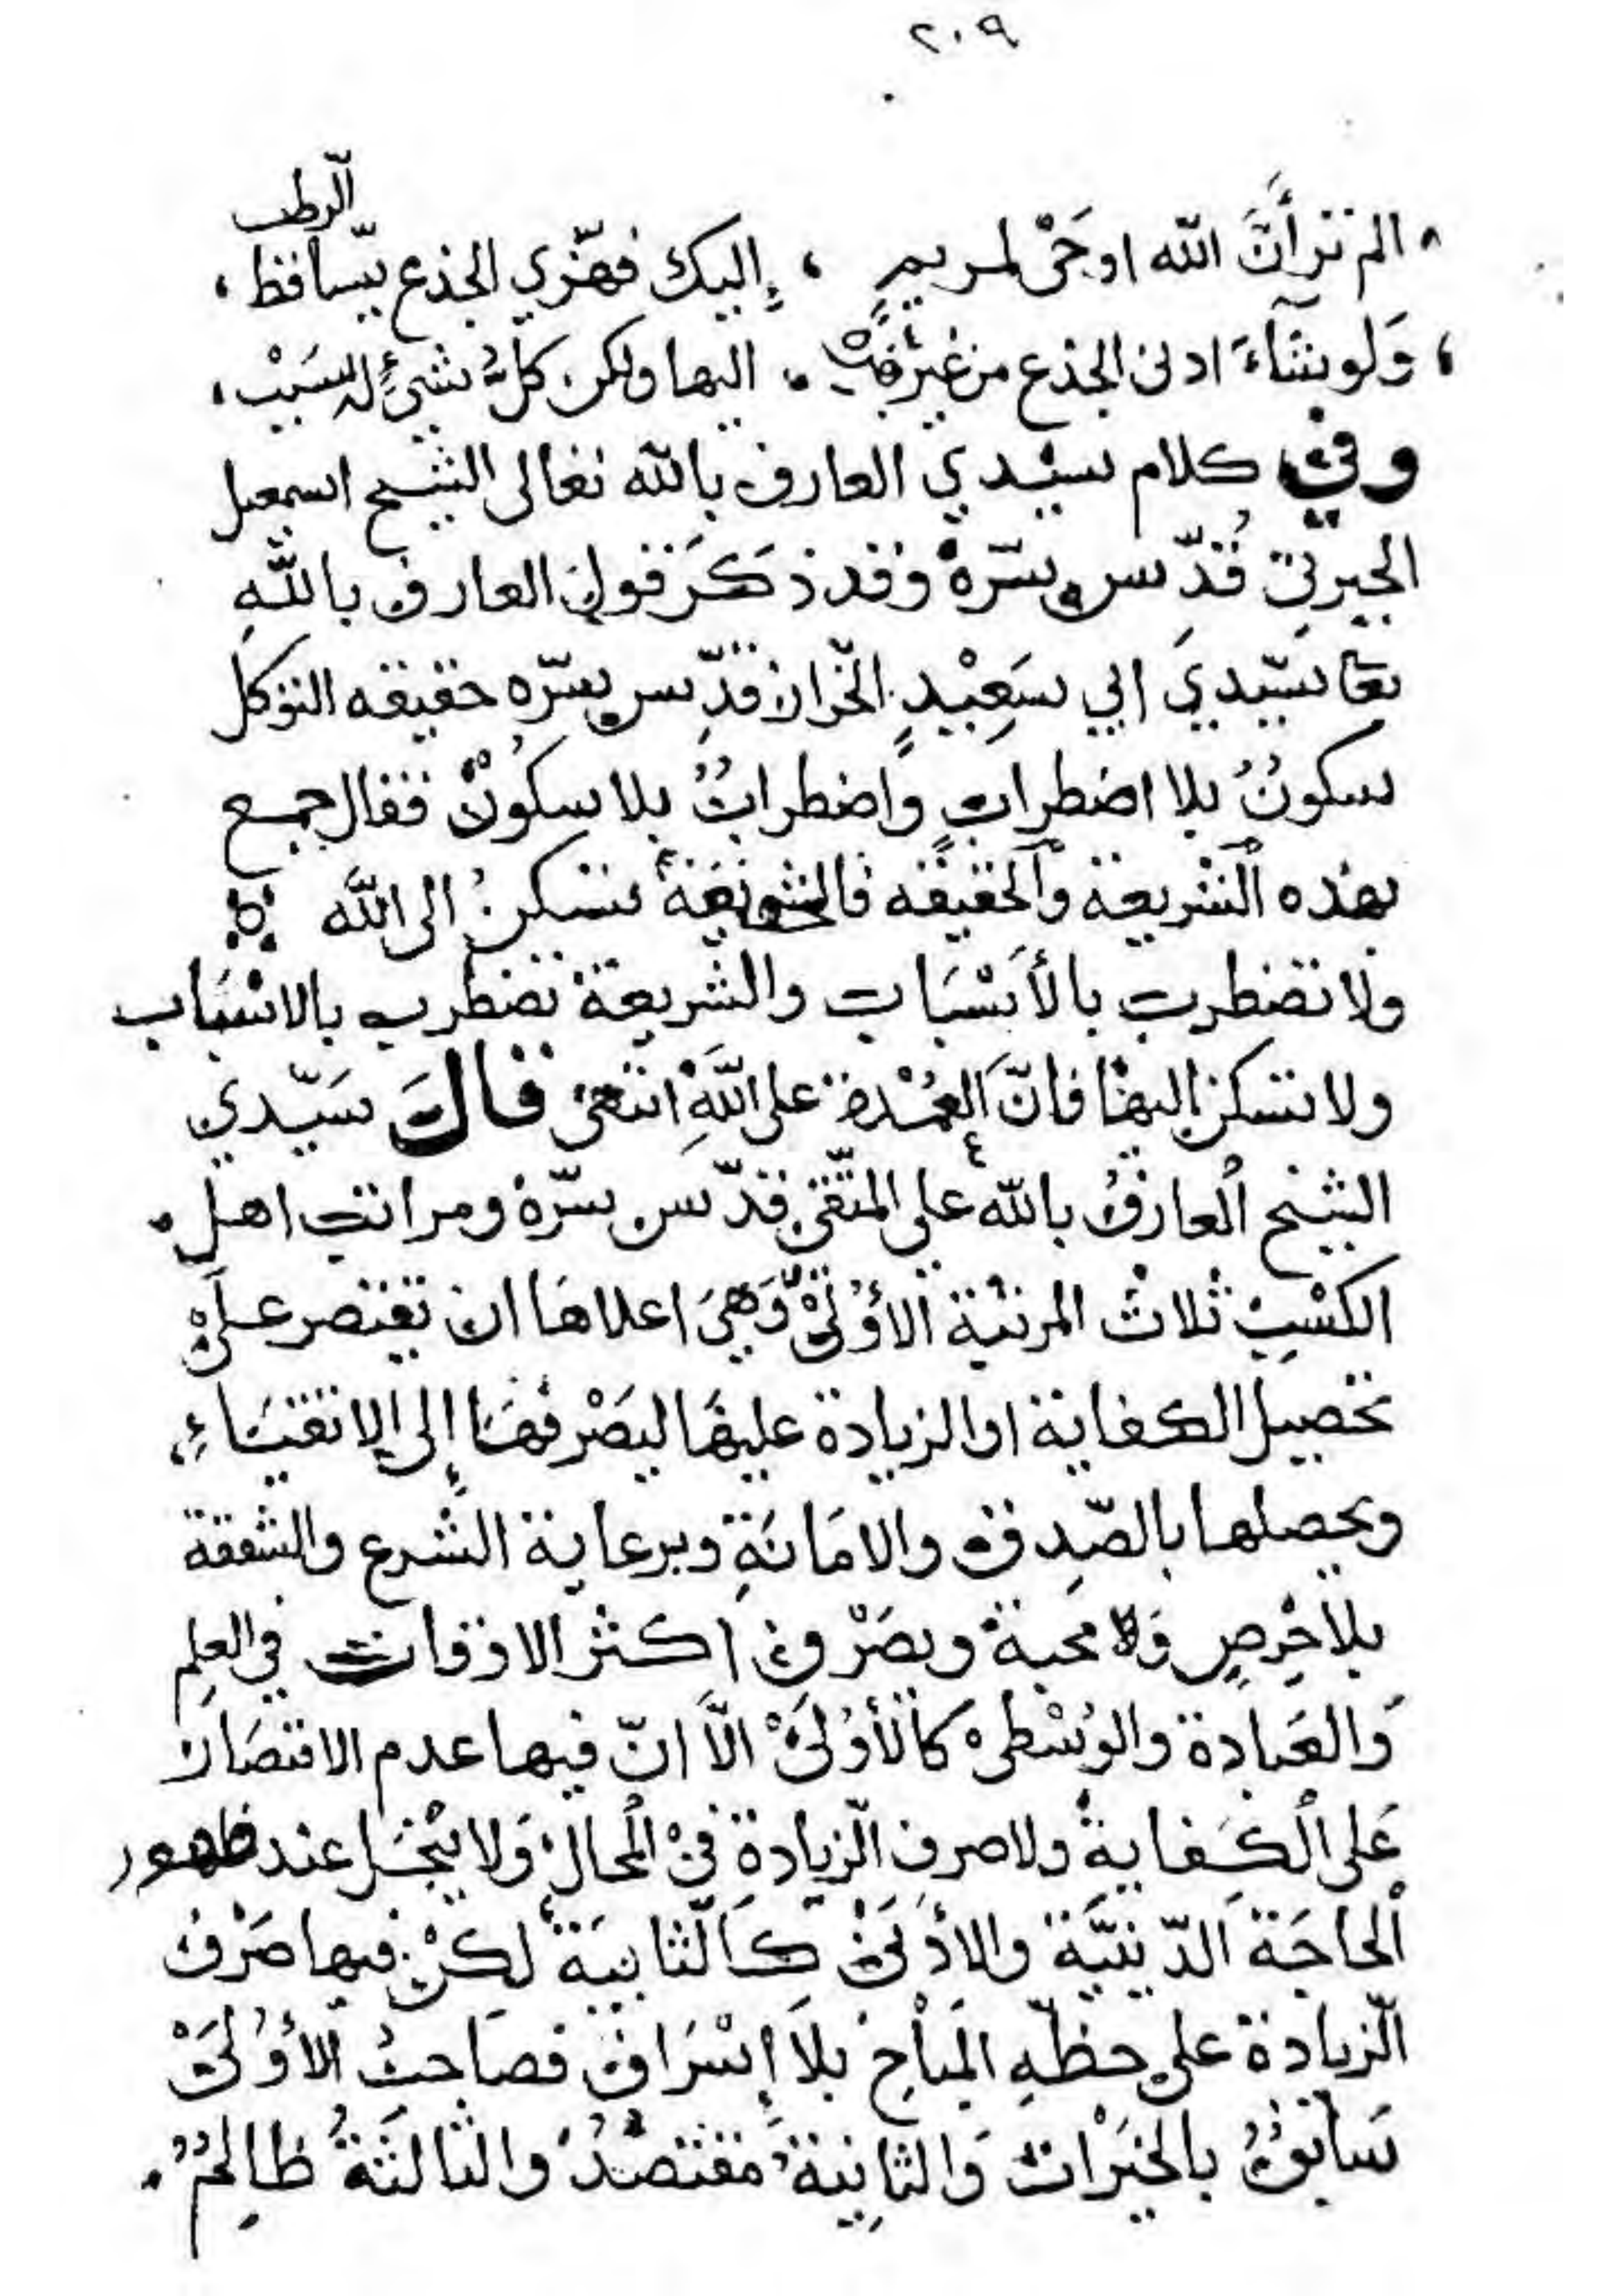 ٢٠٩
الرطب
الم تر أنَّ الله اوحى لمريمٍ ، إليك فهزّي الجذع يسّاقط ،
، وَلو شآءَ ادنى الجذع من غير هزّه ، اليها ولكن كلُّ شيءٍ له سَبَبْ ،
وفي كلام سيّدي العارف بالله تعالى الشيخ اسمعيل
الجبرتي قُدّس سرّهُ وقد ذكَرَ قول العارف باللّهِ
تعا سيّدي ابي سَعِيْدٍ الخرّاز قدِّس سرّه حقيقه التوكل
سكونٌ بلا اضطرابٍ واضطرابٌ بلا سكونْ فقال جمع
بهذه الشريعة والحقيقه تسكن الى الله
ولا تضطرب بالأسْبَاب والشريعة تضطرب بالاسْبَاب
ولا تسكن اليها فانّ العُمْدة على اللَّهِ انتهى قالَ سَيّدي
الشيخ العارفُ بالله علي المتّقي قدّس سرّهُ ومراتب اهل
الكسْبِ ثلاثْ المرتبة الأُوْلىْ وَهِيَ اعلاهَا ان تقتصر على
تحصيل الكفاية او الزيادة عليهَا ليَصْرفهَا إلى الاتقيَاءِ،
ويحصلها بالصّدِق والامَانَةِ وبرعاية الشرع والشفقة
بلا حِرصٍ وَلا محبة ويصَرْف اكثر الاوقات في العلِم
وَالعَبادة والوُسْطىْ كالأُوْلىَْ الّاَ انّ فيها عدم الاقتصَار
عَلى الكَفايةْ ولا صرف الزّيادةِ فيْ الحالْ وَلا يبْخَل عند ظهور
الحاجَة الدّينيَّة والأدْنىْ كَالثّانيَة لكنْ فيها صَرْف
الزّيادة على حظّهِ المبَاحِ بلاَ إسْرَاف فصَاحبُ الأُوْلىَْ
سَابقٌ بالخيْرات وَالثانِية مقتصدٌ والثالثةُ ظالِمٌ .